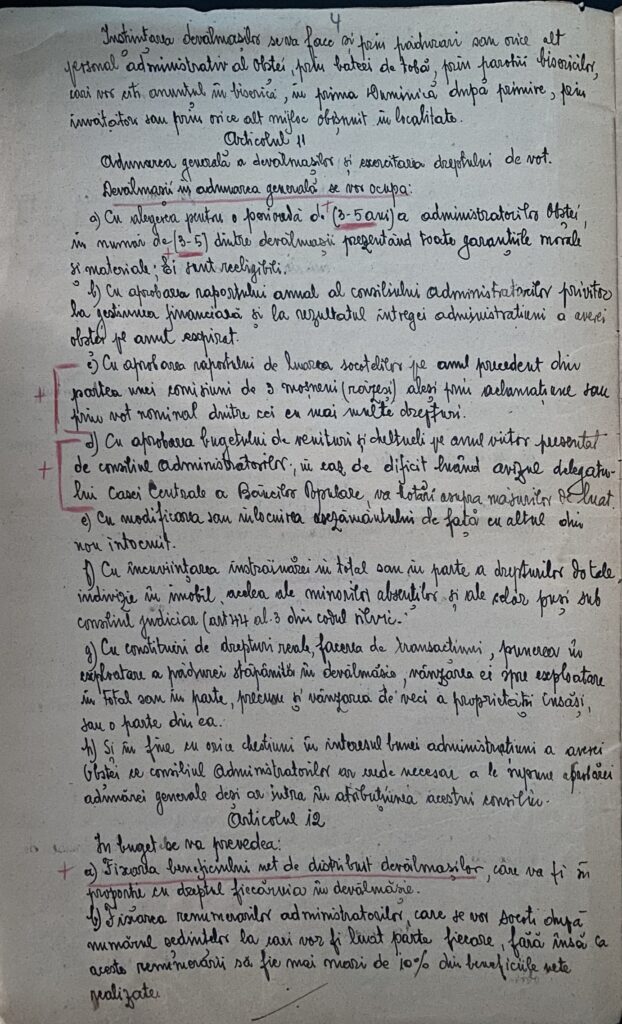 4
Înștiințarea devălmașilor se va face și prin pădurari sau orice alt
personal administrativ al obstei, prin batere de tobă, prin parohii bisericilor,
cari vor citi anunțul în biserică, în prima Duminică după primire, prin
invățători sau prin orice alt mijloc obișnuit în localitate.
Articolul 11
Adunarea generală a devălmașilor și exercitarea dreptului de vot.
Devălmașii în adunarea generală se vor ocupa:
a) Cu alegerea pentru o perioadă de (3-5 ani) a administratorilor Obstei,
in numar de (3-5) dintre devălmașii prezentând toate garanțiile morale
și materiale; Ei sunt reeligibili.
b) Cu aprobarea raportului anual al consiliului administratorilor privitor
la gestiunea financiară și la rezultatul intregei administrațiuni a averei
obstei pe anul expirat.
c) Cu aprobarea raportului de luarea socotelilor pe anul precedent din
partea unei comisiuni de 3 moșneni (răzeși) aleși prin aclamațiune sau
prin vot nominal dintre cei cu mai multe drepturi.
d) Cu aprobarea bugetului de venituri și cheltueli pe anul viitor presentat
de consiliul administratorilor; in caz de dificit luând avizul delegatu-
lui Casei Centrale a Băncilor Populare, va hotărî asupra măsurilor de luat.
e) Cu modificarea sau inlocuirea așezământului de față cu altul din
nou intocmit.
f) Cu incuviințarea instrăinărei in total sau in parte a drepturilor
indivizie în imobil, acelea ale minorilor absenților și ale celor puși sub
consiliul judiciar (art 44 al. 3 din codul silvic.
g) Cu constituiri de drepturi reale, facerea de transacțiuni, punerea în
exploatare a pădurei stăpânită în devălmășie, vânzarea ei spre exploatare
in total sau in parte, precum și vânzarea de veci a proprietății însăși,
sau o parte din ea.
h) Și în fine cu orice chestiuni în interesul bunei administrațiuni a averei
Obstei ce consiliul Administratorilor ar crede necesar a le supune aprobărei
adunărei generale deși ar intra în atribuțiunea acestui consiliu.
Articolul 12
In buget se va prevedea:
a) Fixarea beneficiului net de distribuit devălmașilor, care va fi în
proporție cu dreptul fiecăruia în devălmășie.
b) Fixarea remunerarilor administratorilor, care se vor socoti după
numărul ședințelor la cari vor fi luat parte fiecare, fără însă ca
aceste remunerării să fie mai mari de 10% din beneficiile nete
realizate